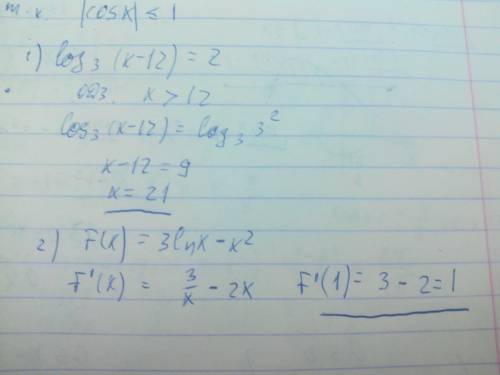 т.к. |cosx| ≤ 1
1) log₃ (x-12) = 2
ОДЗ. x > 12
log₃(x-12) = log₃ 3²
x-12 = 9
x = 21
2) F(x) = 3lnx - x²
F'(x) = 3/x - 2x F'(1) = 3 - 2 = 1